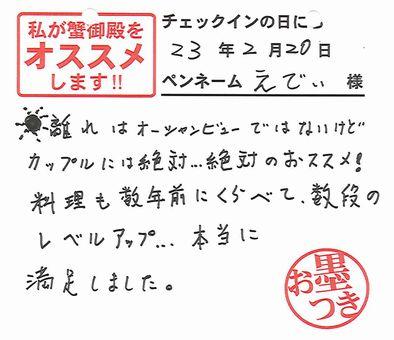 私が蟹御殿を
オススメ
します!!
チェックインの日に
23年2月20日
ペンネーム えでぃ 様
離れはオーシャンビューではないけど
カップルには絶対…絶対のおススメ!
料理も数年前にくらべて、数段の
レベルアップ… 本当に
満足しました。
お墨つき